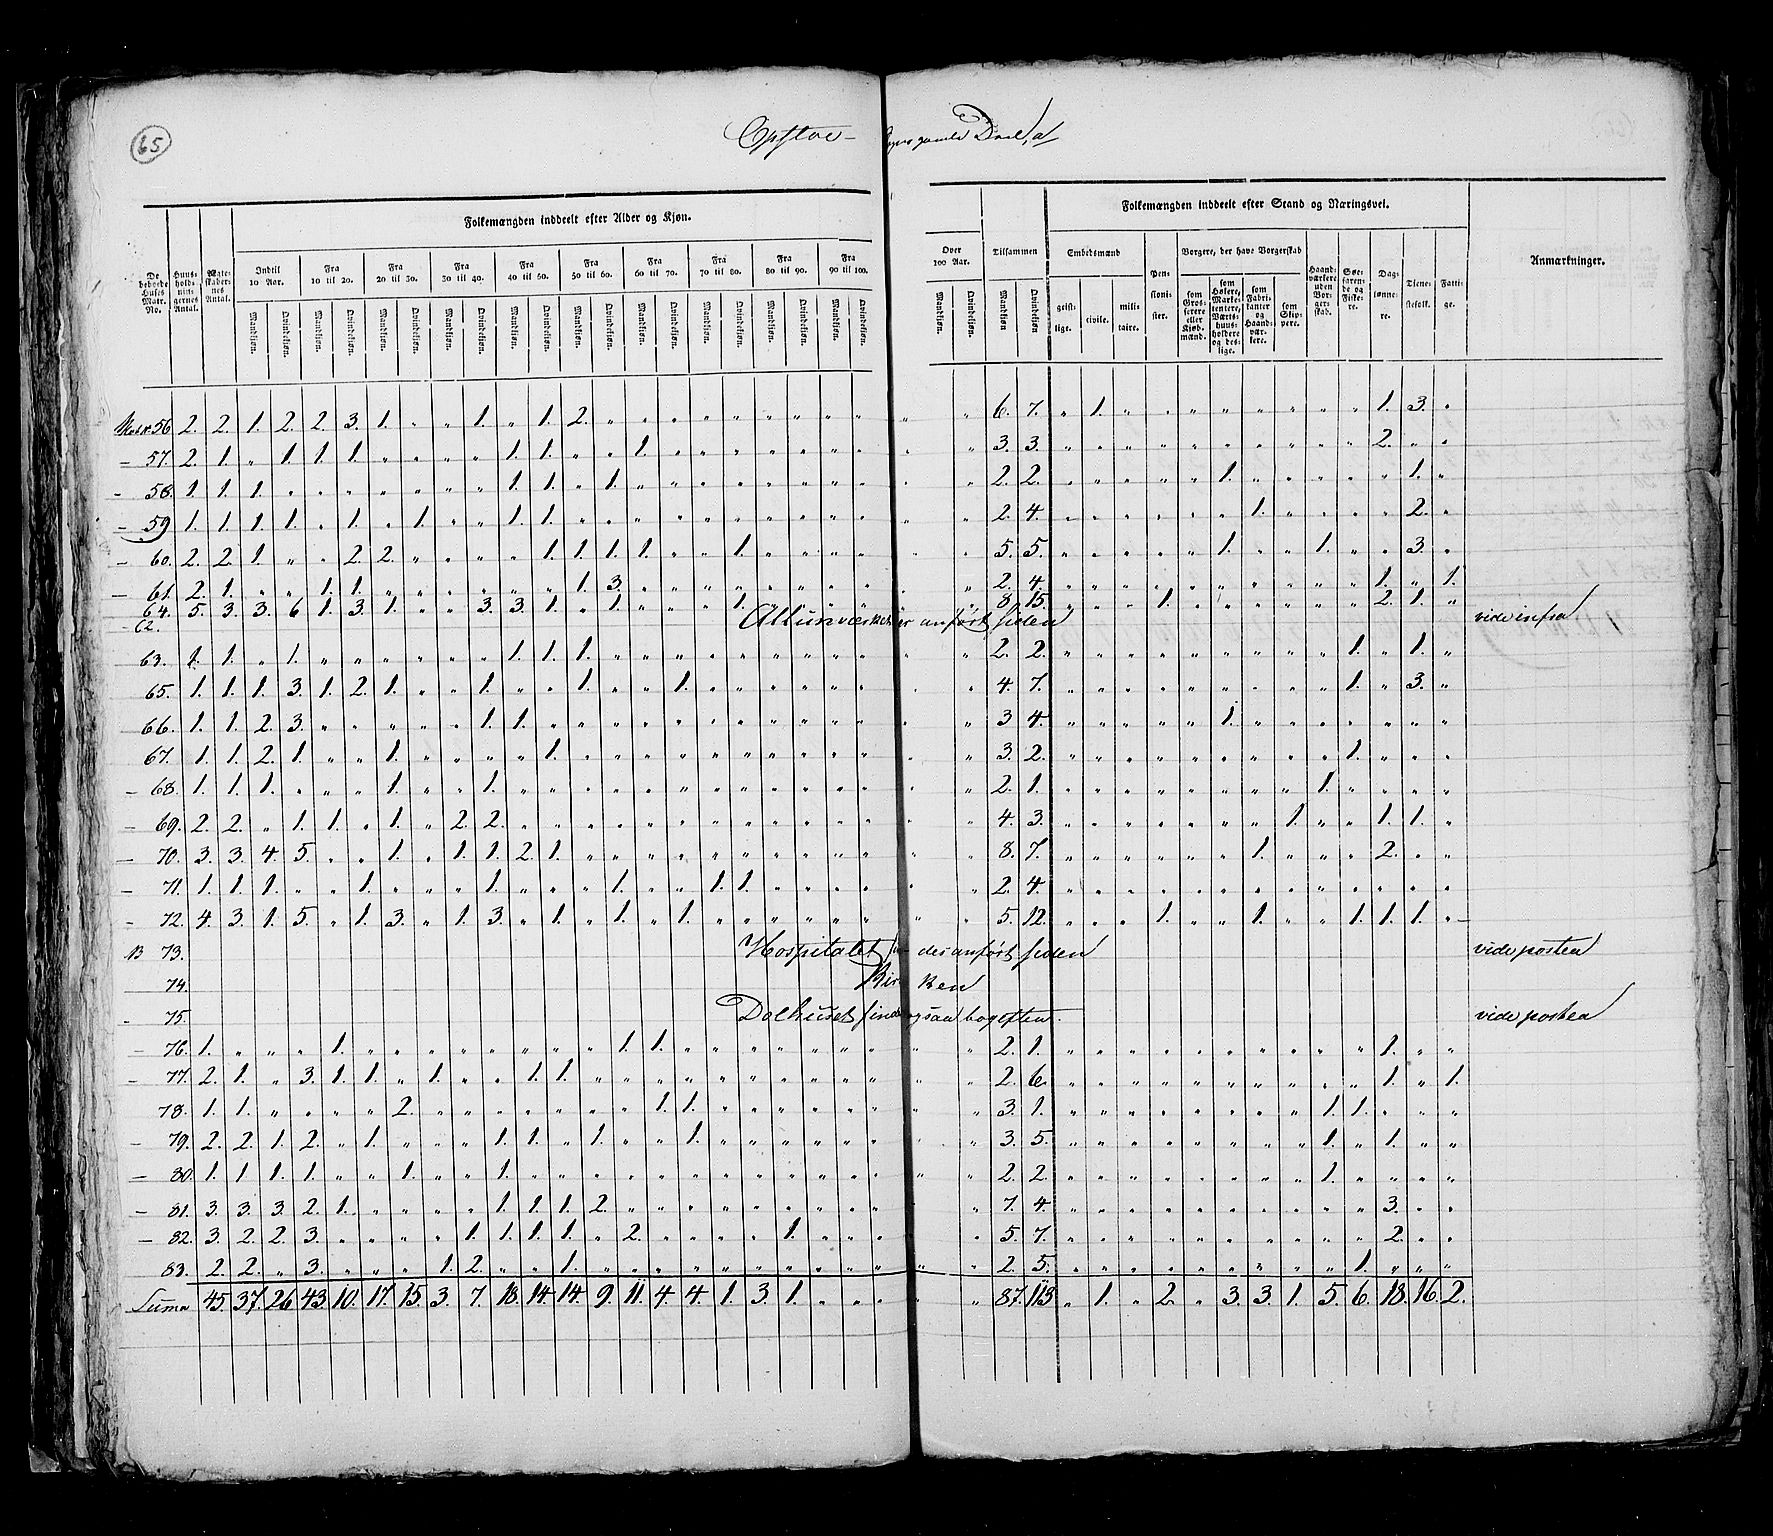 65
Opsloe- Byes gamle Deel, a
Folkemængden inddeelt efter Alder og Kjøn.
Folkemængden inddeelt efter Stand og Næringsvei.
De beboede Huses Matr. No. | Huus- hold- nin- gernes Antal. | Indtil 10 Aar. | Fra 10 til 20. | Fra 20 til 30. | Fra 30 til 40. | Fra 40 til 50. | Fra 50 til 60. | Fra 60 til 70. | Fra 70 til 80. | Fra 80 til 90. | Fra 90 til 100. | Over 100 Aar. | Tilsammen | Embedsmænd | Pen- sioni- ster. | Borgere, der have Borgerskab | Haand- værkere uden Bor- ger- skab. | Søe- farens- de og Fiske- re. | Dag- lønne- re. | Tjene- stefolk. | Fatti- ge. | Anmærkninger.
Mandkjøn. Qvindekjøn. | geist- lige. | civile. | mili- taire. | som Gros- serere eller Kjøb- mænd. | som Høkere, Marke- tentere, Værts- huus- holdere og des- lige. | som Fabri- kanter og Haand- vær- kere. | som Skip- pere.
Matr. 56 2. 2. 1. 2. 2. 3. 1. „ „ 1. „ 1. 2. „ „ „ „ „ „ „ „ „ „ „ 6. 7. „ 1. „ „ „ „ „ „ „ „ 1. 3. „
– 57. 2. 1. „ 1. 1. 1. „ „ „ „ 1. 1. „ „ 1. „ „ „ „ „ „ „ „ „ 3. 3. „ „ „ „ „ „ „ „ „ „ 2. „ „
– 58. 1. 1. 1. „ „ „ „ „ „ „ 1. 1. „ 1. „ „ „ „ „ „ „ „ „ „ 2. 2. „ „ „ „ „ 1. „ „ „ „ „ 1. „
– 59 1. 1. 1. 1. „ 1. „ 1. „ „ 1. 1. „ „ „ „ „ „ „ „ „ „ „ „ 2. 4. „ „ „ „ „ „ 1. „ „ „ „ 2. „
– 60. 2. 2. 1. „ „ 2. 2. „ „ „ „ 1. 1. 1. 1. „ „ 1. „ „ „ „ „ „ 5. 5. „ „ „ „ „ 1. „ „ 1. „ „ 3. „
– 61. 2. 1. „ „ 1. 1. „ „ „ „ „ „ 1. 3. „ „ „ „ „ „ „ „ „ „ 2. 4. „ „ „ „ „ „ „ „ „ „ 1. „ 1.
64. 5. 3. 3. 6 1. 3. 1. „ „ 3. 3. 1. „ 1. „ „ „ 1. „ „ „ „ „ „ 8. 15. „ „ „ 1. „ „ „ „ „ „ 2. 1. „
– 62. Allunværket er anført siden vide infra
63. 1. 1. „ 1. „ „ „ „ „ „ 1. 1. 1. „ „ „ „ „ „ „ „ „ „ „ 2. 2. „ „ „ „ „ „ „ „ „ 1. „ 1. „
65. 1. 1. 1. 3. 1. 2. 1. „ „ 1. „ „ 1. „ „ 1. „ „ „ „ „ „ „ „ 4. 7. „ „ „ „ „ „ „ „ „ 1. „ 3. „
66. 1. 1. 2. 3. „ „ „ „ „ 1. 1. „ „ „ „ „ „ „ „ „ „ „ „ „ 3 4. „ „ „ „ „ 1. „ „ „ „ „ „ „
67. 1. 1. 2. 1. „ „ 1. „ „ „ „ 1. „ „ „ „ „ „ „ „ „ „ „ „ 3. 2. „ „ „ „ „ „ „ „ „ 1. „ „ „
– 68. 1. 1. 1. „ „ „ 1. „ „ 1. „ „ „ „ „ „ „ „ „ „ „ „ „ „ 2. 1. „ „ „ „ „ „ „ „ 1. „ „ „ „
– 69. 2. 2. „ 1. 1. „ 1. „ 2. 2. „ „ „ „ „ „ „ „ „ „ „ „ „ „ 4. 3. „ „ „ „ „ „ „ 1. „ „ 1. 1. „
– 70. 3. 3. 4. 5. „ „ 1. „ 1. 1. 2. 1. „ „ „ „ „ „ „ „ „ „ „ „ 8. 7. „ „ „ „ „ „ 1. „ „ „ 2. „ „
– 71. 1. 1. 1. „ „ 1. „ „ „ 1. „ „ „ 1. „ „ 1. 1. „ „ „ „ „ „ 2. 4. „ „ „ „ „ „ „ „ „ „ „ „ „
– 72. 4. 3. 1. 5. „ 1. 3. „ 1. 3. „ 1. „ 1. „ 1. „ „ „ „ „ „ „ „ 5. 12. „ „ „ 1. „ „ 1. „ „ 1. 1. 1. „
73. Hospitalet findes anført siden vide postea
74. Kirken
– 75. Dolhuset findes ogsaa bagefter. vide postea
– 76. 1. „ „ „ 1. „ „ „ „ „ „ „ „ 1. 1. „ „ „ „ „ „ „ „ „ 2. 1. „ „ „ „ „ „ „ „ „ „ 1. „ „
– 77. 2. 1. „ 3. 1. 1. „ 1. „ „ 1. 1. „ „ „ „ „ „ „ „ „ „ „ „ 2. 6. „ „ „ „ „ „ „ „ „ „ 1. „ 1.
78. 1. 1. „ „ „ „ 2. „ „ „ „ „ „ „ 1. 1. „ „ „ „ „ „ „ „ 3. 1. „ „ „ „ „ „ „ „ 1. 1. „ „ „
– 79. 2. 2. 1. 2. „ 1. „ „ „ 1. 1. „ 1. „ „ 1. „ „ „ „ „ „ „ „ 3. 5. „ „ „ „ „ „ „ „ 1. „ 1. „ „
– 80. 1. 1 1. 1. „ „ 1. „ „ 1. „ „ „ „ „ „ „ „ „ „ „ „ „ „ 2. 2. „ „ „ „ „ „ „ „ 1. „ „ „ „
– 81. 3. 3. 3. 2. 1. „ „ „ „ 1. 1. 1. 2. „ „ „ „ „ „ „ „ „ „ „ 7. 4. „ „ „ „ „ „ „ „ „ „ 3. „ „
– 82. 3. 2. 2. 3. „ „ „ „ 1. 1. 1. 1. „ 2. „ „ „ „ 1. „ „ „ „ „ 5. 7. „ „ „ „ „ „ „ „ „ „ 2. „ „
83. 2. 2. „ 3. „ „ „ 1. 2. „ „ 1. „ „ „ „ „ „ „ „ „ „ „ „ 2. 5. „ „ „ „ „ „ „ „ „ 1. „ „ „
Suma 45. 37. 26 43. 10. 17. 15. 3. 7. 18. 14. 14. 9. 11. 4. 4. 1. 3. 1. „ „ „ „ „ 87. 113 „ 1. „ 2. „ 3. 3. 1. 5. 6. 18. 16. 2.